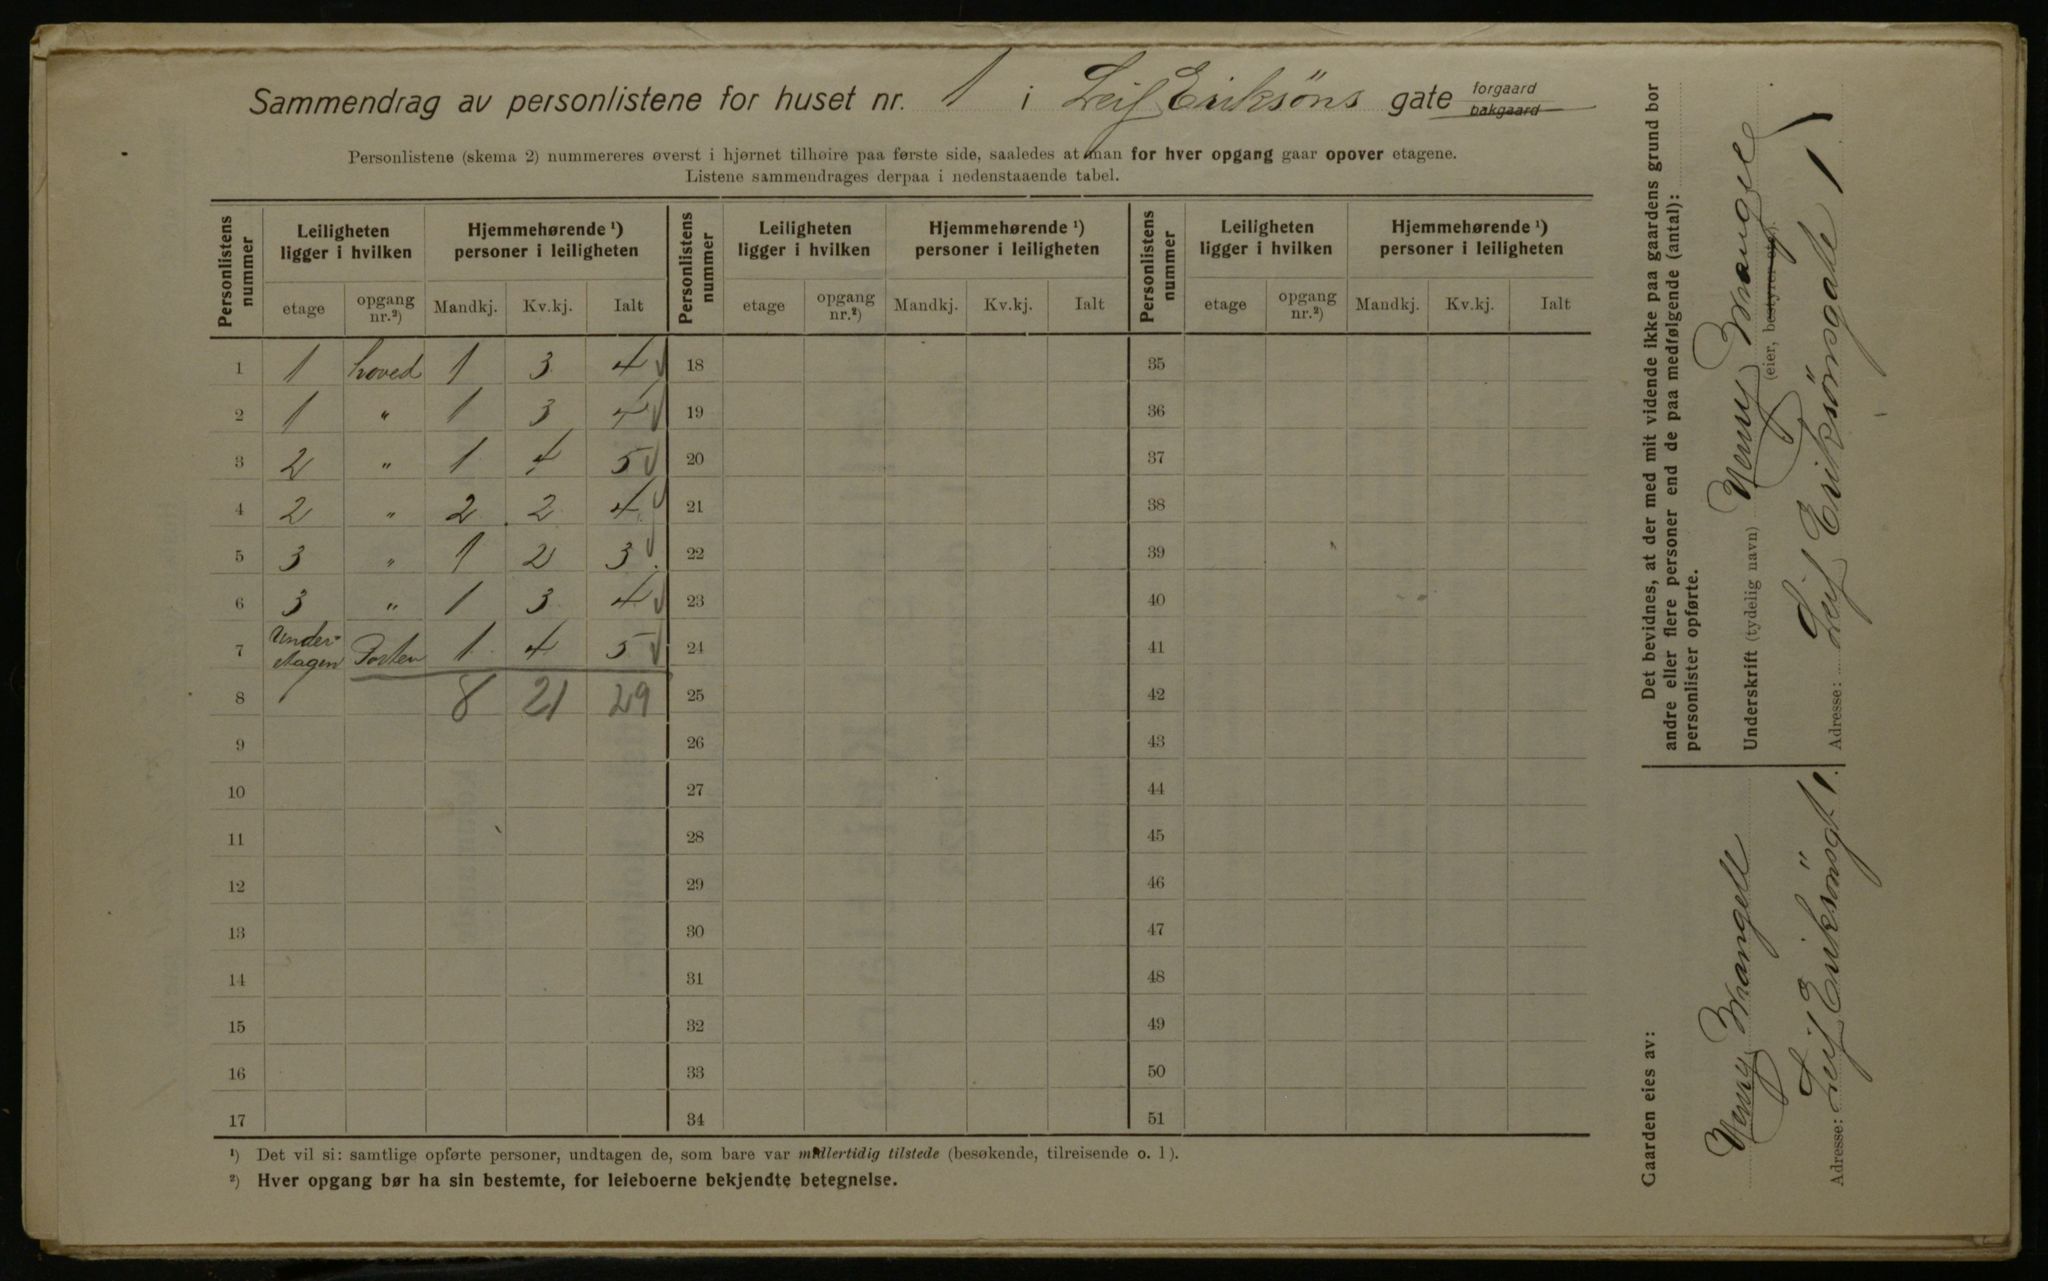 Sammendrag av personlistene for huset nr. 1 i Leif Eriksöns gate forgaard bakgaard
Personlistene (skema 2) nummereres øverst i hjørnet tilhøire paa første side, saaledes at man for hver opgang gaar opover etagene.
Listene sammendrages derpaa i nedenstaaende tabel.
Personlistens nummer | Leiligheten ligger i hvilken | Hjemmehørende ¹) personer i leiligheten | Personlistens nummer | Leiligheten ligger i hvilken | Hjemmehørende ¹) personer i leiligheten | Personlistens nummer | Leiligheten ligger i hvilken | Hjemmehørende ¹) personer i leiligheten
etage | opgang nr.²) | Mandkj. | Kv.kj. | Ialt | etage | opgang nr.²) | Mandkj. | Kv.kj. | Ialt | etage | opgang nr.²) | Mandkj. | Kv.kj. | Ialt
1 | 1 | hoved | 1 | 3 | 4 √ | 18 | 35
2 | 1 | " | 1 | 3 | 4 √ | 19 | 36
3 | 2 | " | 1 | 4 | 5 √ | 20 | 37
4 | 2 | " | 2 | 2 | 4 √ | 21 | 38
5 | 3 | " | 1 | 2 | 3 √ | 22 | 39
6 | 3 | " | 1 | 3 | 4 √ | 23 | 40
7 | Under-etagen | Porten | 1 | 4 | 5 √ | 24 | 41
8 | 8 | 21 | 29 | 25 | 42
9 | 26 | 43
10 | 27 | 44
11 | 28 | 45
12 | 29 | 46
13 | 30 | 47
14 | 31 | 48
15 | 32 | 49
16 | 33 | 50
17 | 34 | 51
¹) Det vil si: samtlige opførte personer, undtagen de, som bare var midlertidig tilstede (besøkende, tilreisende o. l).
²) Hver opgang bør ha sin bestemte, for leieboerne bekjendte betegnelse.
Det bevidnes, at der med mit vidende ikke paa gaardens grund bor
andre eller flere personer end de paa medfølgende (antal):
personlister opførte.
Underskrift (tydelig navn) Henry Wrangell
(eier, bestyrer etc.).
Adresse: Leif Eriksönsgate 1
Gaarden eies av:
Henry Wrangell
Adresse: Leif Eriksönsgt 1.